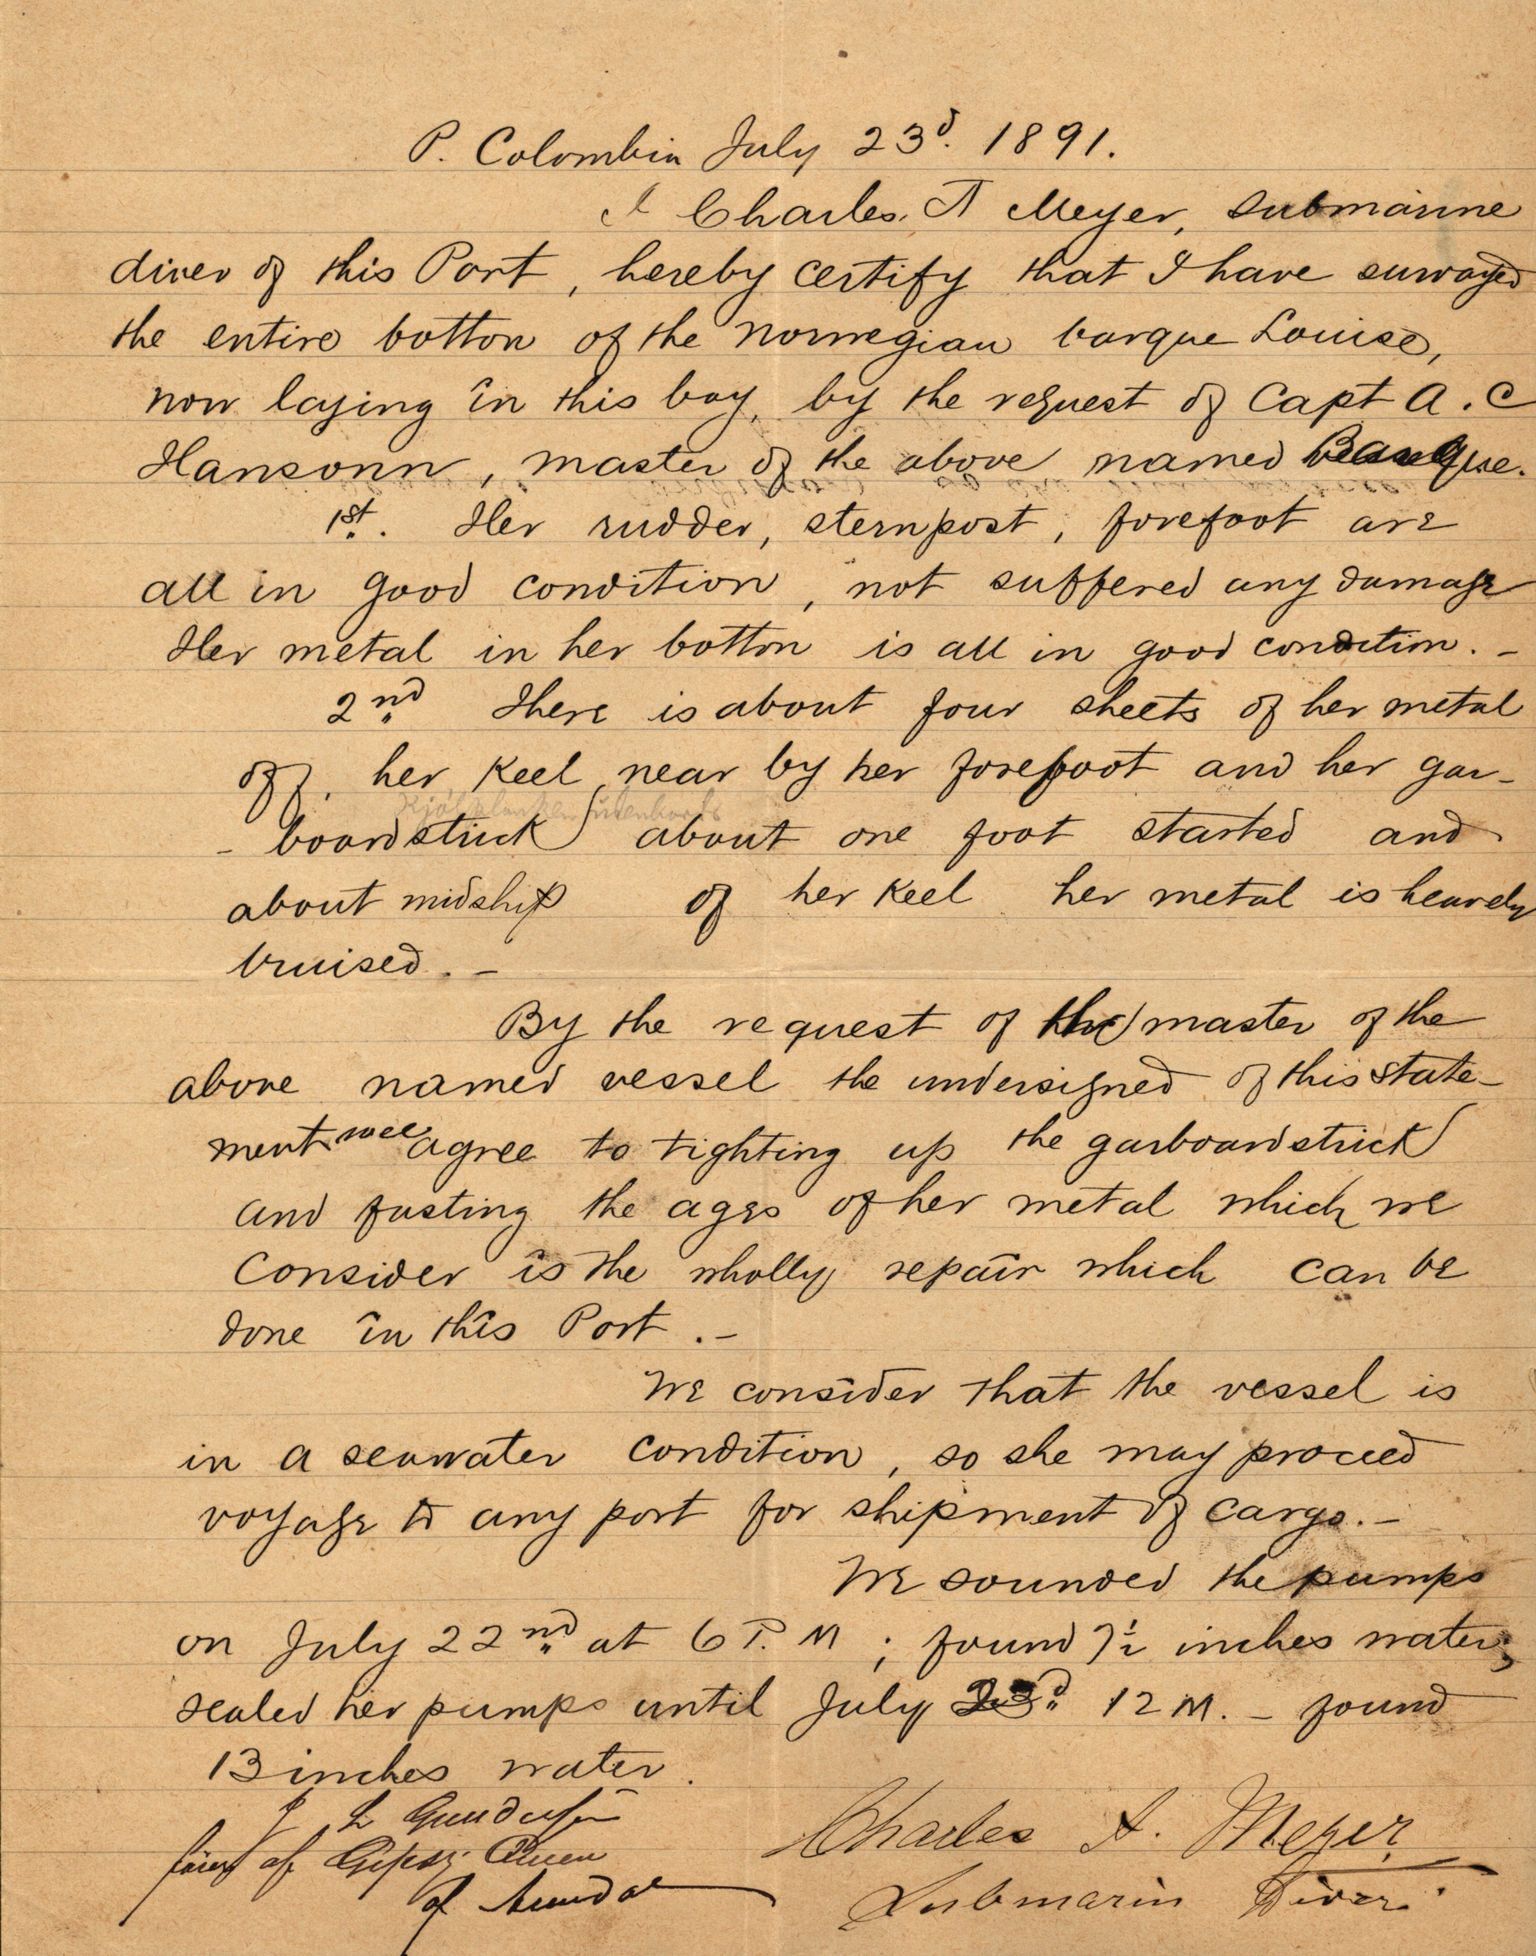 P. Colombia July 23d. 1891.
I Charles A Meyer, submarine
diver of this Port, hereby certify that I have survayed
the entire botton of the Norwegian barque Louise,
now laying in this bay, by the request of Capt A. C
Hansonn, master of the above named Barque.
1st. Her rudder, sternpost, forefoot are
all in good condition, not suffered any damage
Her metal in her botton is all in good condition. -
2nd There is about four sheets of her metal
off, her keel, near by her forefoot and her gar-
Kjølplanken
- boardstrick about one foot started and
about midship of her keel her metal is heavely
bruised. -
By the request of the master of the
above named vessel the undersigned of this state-
ment wee agree to tighting up the garboardstrick
and fasting the ages of her metal which we
Consider is the wholly repair which can be
done in this Port. -
We consider that the vessel is
in a seawater condition, so she may proceed
voyage to any port for shipment of cargo. -
We sounded the pumps
on July 22nd at 6 P. M; found 7½ inches water;
sealed her pumps until July 23d 12 M. - found
13 inches water.
J L Gundersen
of Gipsy Queen
of
Charles A. Meyer
Submarin Diver.